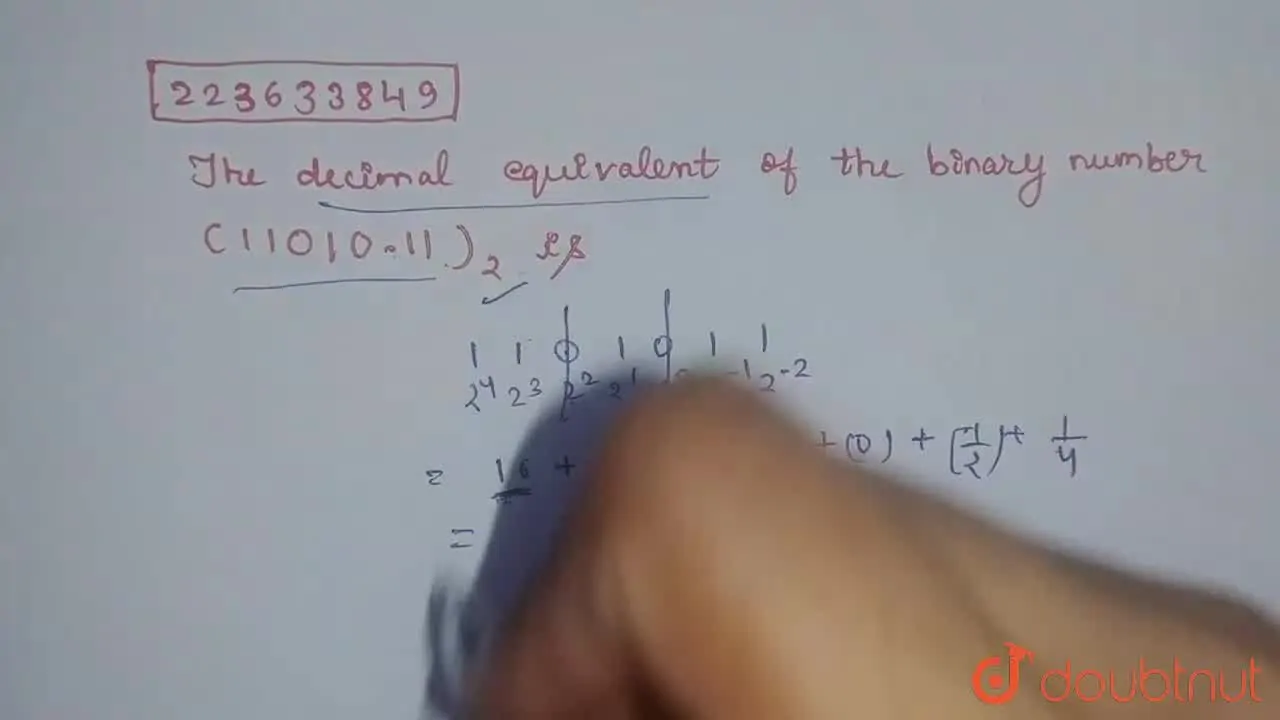 223633849
The decimal equivalent of the binary number
(11010.11)₂ is
1 1 0 1 0 1 1
2⁴ 2³ 2² 2¹ 2⁻²
= 16 + + (0) + (1/2) + 1/4
=
doubtnut